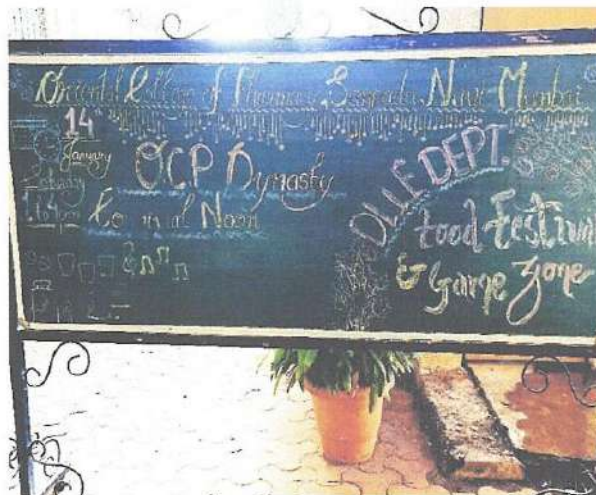 Oriental College of Pharmacy Sanpada Navi Mumbai
14
January
OCP Dynasty
Noon
DLLE DEPT.
Food Festival
& Game Zone